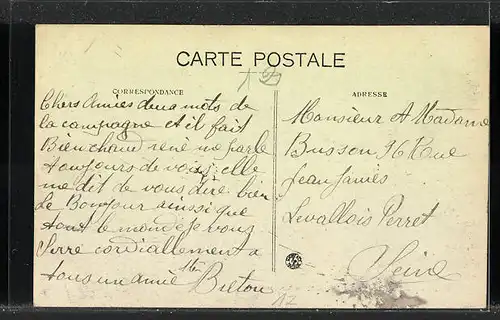 CARTE POSTALE
CORRESPONDANCE
Chers Amies deux mots de
la compagne et il fait
Bien chaud rené me parle
toujours de vous elle
me dit de vous dire bien
Le Bonjour ainssi que
tout le monde Je vous
Serre cordiallement a
tous un amie Breton
ADRESSE
Monsieur et Madame
Busson 96 Rue
Jean James
Levallois Perret
Seine
17